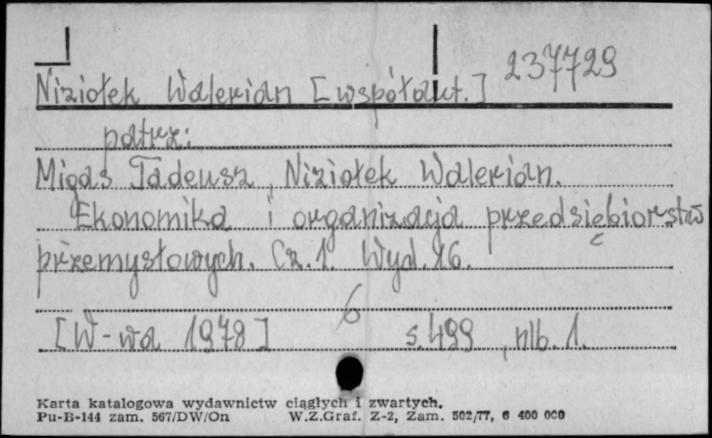 237729
Niziołek Walerian [współaut.]
patrz:
Migas Tadeusz, Niziołek Walerian.
Ekonomika i organizacja przedsiębiorstw
przemysłowych. Cz. 1. Wyd. 16.
6
[W-wa 1978] s. 499, nlb. 1.
Karta katalogowa wydawnictw ciągłych i zwartych.
Pu-B-144 zam. 567/DW/On W.Z.Graf. Z-2, Zam. 502/77, 6 400 000